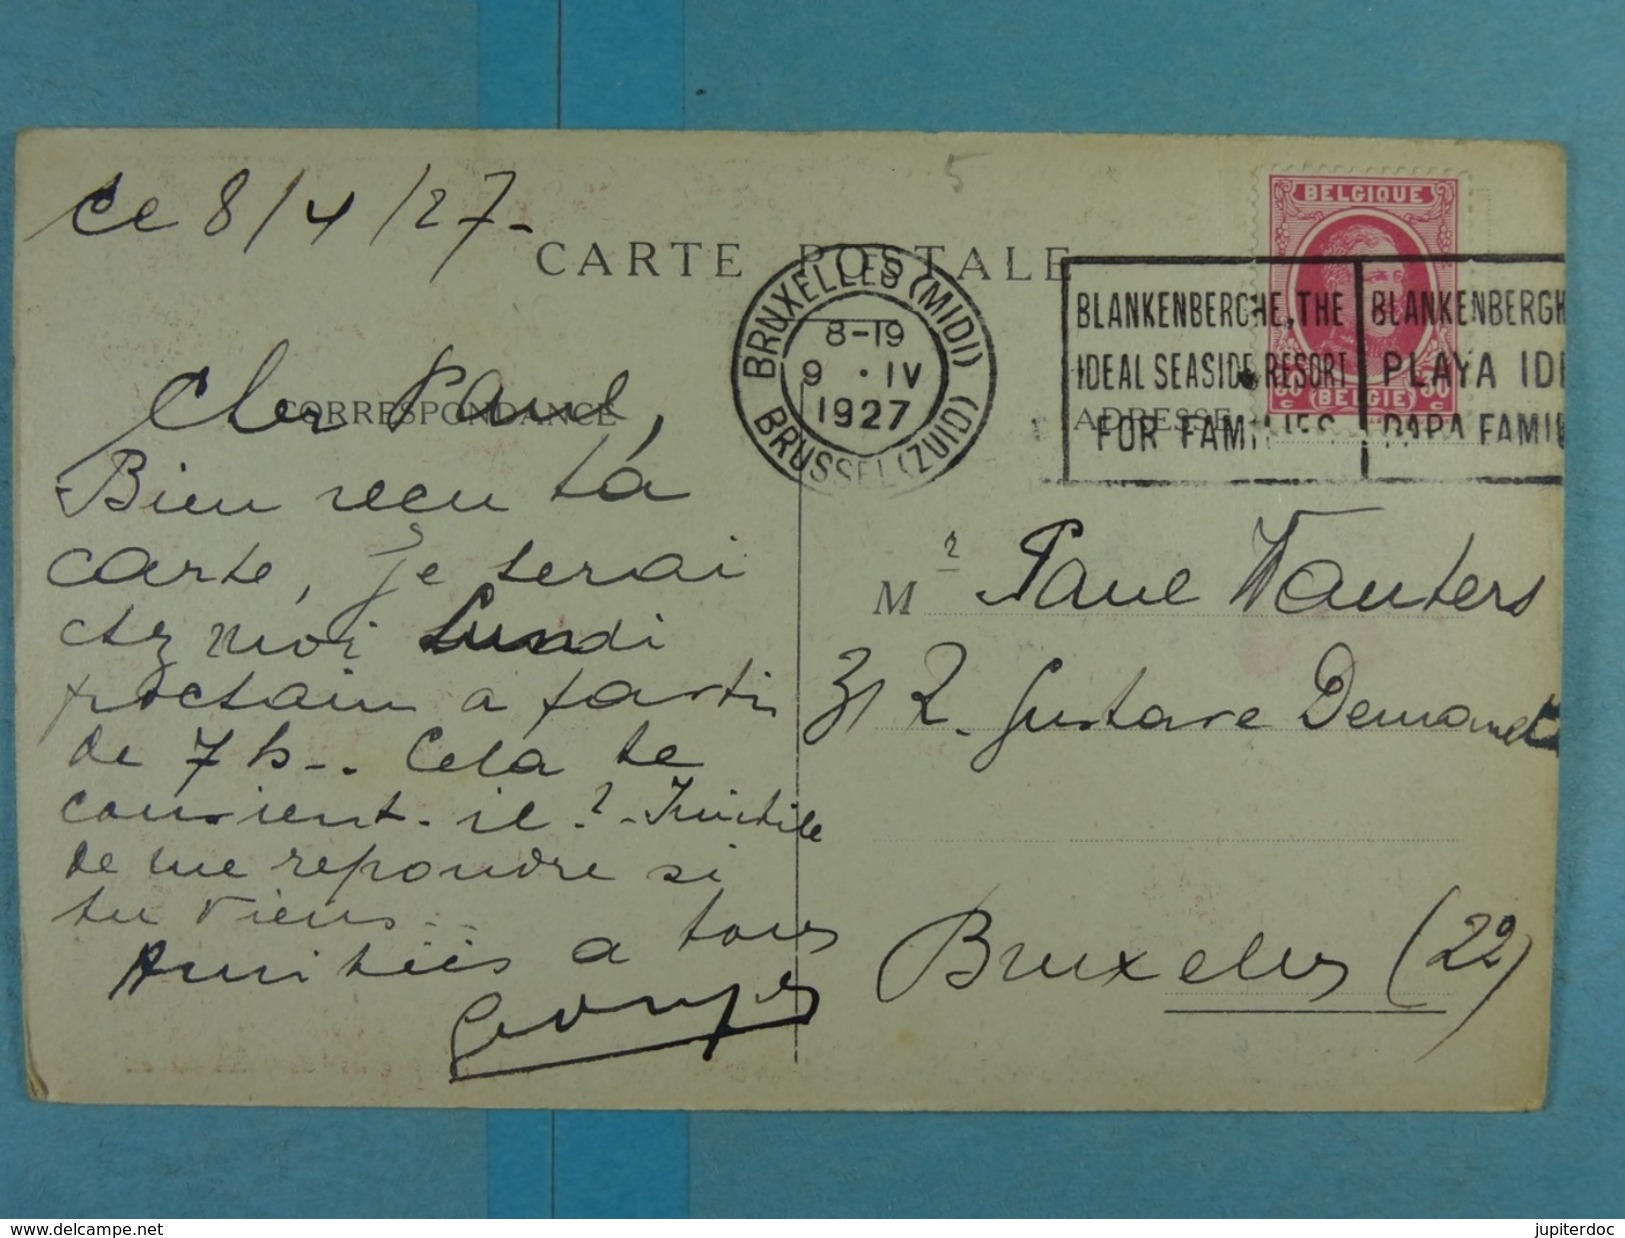 ce 8/4/27-
5
CARTE POSTALE
BELGIQUE
BRUXELLES (MIDI)
8-19
9 · IV
1927
BRUSSEL (ZUID)
BLANKENBERGHE, THE
IDEAL SEASIDE RESORT
FOR FAMILIES
BLANKENBERGH
PLAYA IDE
PARA FAMIL
30 c (BELGIE) 30 c
CORRESPONDANCE
ADRESSE
Cher Paul,
Bien recu ta
carte, je serai
chez moi Lundi
prochain a partir
de 7 h-. Cela te
convient-il ?- Inutile
de me repondre si
tu viens...
Amitiés a tous
Georges
Mr Paul Wauters
31 R. Gustave Demanet
Bruxelles (22)
www.delcampe.net
jupiterdoc